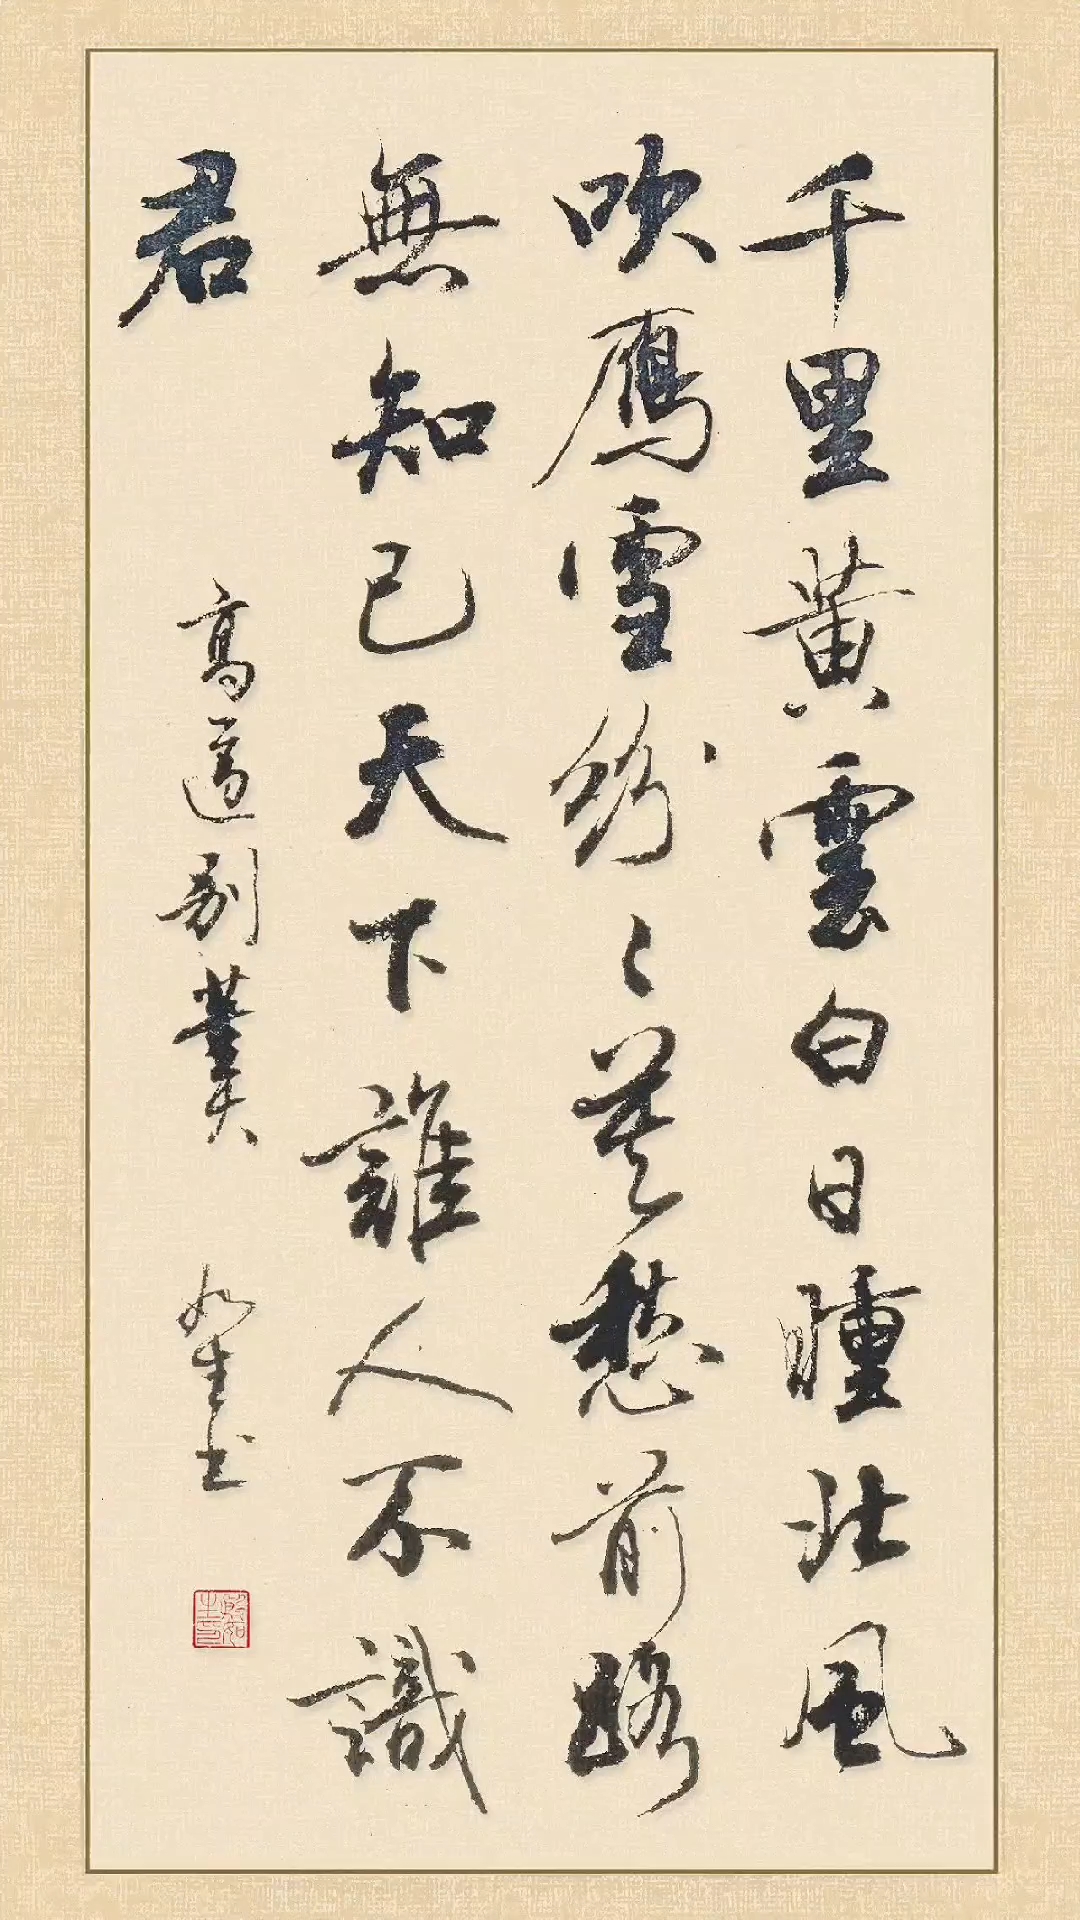 千里黄雲白日曛北風
吹鴈雪紛〻莫愁前路
無知己天下誰人不識
君
高適別董大
如生书